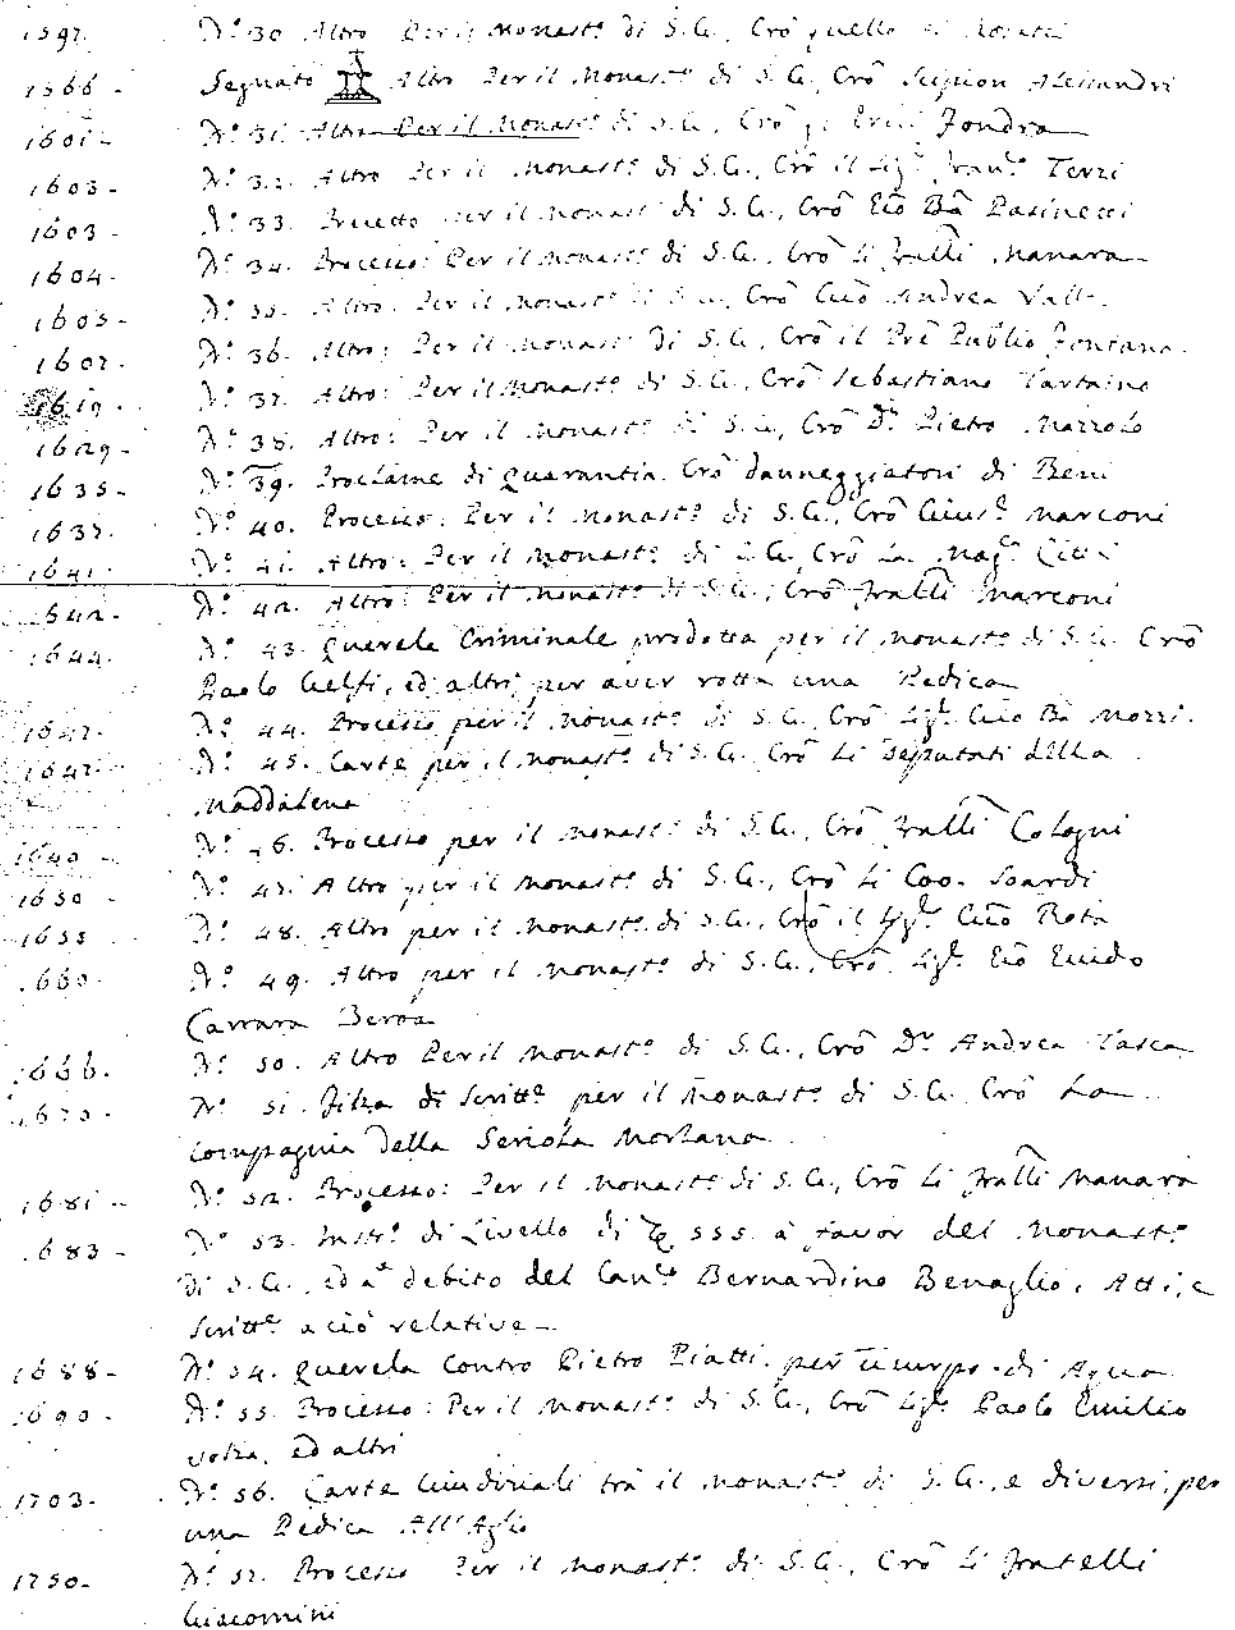 1597. N.º 30 Altro Per il Monast.º di S.G., Crõ quello di
1566 - Segnato Altro Per il Monast.º di S.G., Crõ Scipion Alessandri
1601 - N.º 31. Altro Per il Monast.º di S.G., Crõ Fondra
1603 - N.º 32. Altro Per il Monast.º di S.G., Crõ il Sig.r Fran.co Terzi
1603 - N.º 33. Per il Monast.º di S.G., Crõ Giõ Bã Pasinetti
1604 - N.º 34. Processo: Per il Monast.º di S.G., Crõ li Fralli Manara
1605 - N.º 35. Altro: Per il Monast.º di S.G., Crõ Giõ Andrea Valle
1607. N.º 36. Altro: Per il Monast.º di S.G., Crõ il Prẽ Publio Fontana.
1619. N.º 37. Altro: Per il Monast.º di S.G., Crõ Sebastiano Tartaino
1629 - N.º 38. Altro: Per il Monast.º di S.G., Crõ D.r Pietro Mazzolo
1635 - N.º 39. Proclame di Quarantia. Crõ danneggiatori di Beni
1637. N.º 40. Processo: Per il Monast.º di S.G., Crõ Gius.e Marconi
1641. N.º 41. Altro: Per il Monast.º di S.G., Crõ La Mag.ca Città
1642 - N.º 42. Altro: Per il Monast.º di S.G., Crõ Fralli Marconi
1644. N.º 43. Querela Criminale prodotta per il Monast.º di S.G. Crõ
Paolo Gelfi, ed altri, per aver rotta una Pedica
1647. N.º 44. Processo per il Monast.º di S.G. Crõ Sig.r Giõ Bã Mozzi.
1647. N.º 45. Carte per il Monast.º di S.G. Crõ Li Deputati della
Maddalena
1649 - N.º 46. Processo per il Monast.º di S.G., Crõ Fralli Cologni
1650 - N.º 47. Altro per il Monast.º di S.G., Crõ Li Coo. Soardi
1655 N.º 48. Altro per il Monast.º di S.G., Crõ il Sig.r Giõ Rota
1660. N.º 49. Altro per il Monast.º di S.G., Crõ Sig.r Giõ Guido
Carrara Beroa
1666. N.º 50. Altro Per il Monast.º di S.G., Crõ D.r Andrea Tasca
1670. N.º 51. Filza di Scritt.e per il Monast.º di S.G. Crõ La
Compagnia della Seriola Morlana
1681 - N.º 52. Processo: Per il Monast.º di S.G., Crõ Li Fralli Manara
1683 - N.º 53. Instr.º di Livello di 555. à favor del Monast.º
di S.G., ed a debito del Can.co Bernardino Benaglio, Atti, e
Scritt.e a ciò relative -
1688 - N.º 54. Querela Contro Pietro Piatti, per usurpo di Aqua
1690. N.º 55. Processo: Per il Monast.º di S.G., Crõ Sig.r Paolo Emilio
Volza, ed altri
1703. N.º 56. Carte Giudiziali trà il Monast.º di S.G., e diversi, per
una Pedica All' Aglio
1750 - N.º 57. Processo Per il Monast.º di S.G., Crõ Li Fratelli
Giacomini